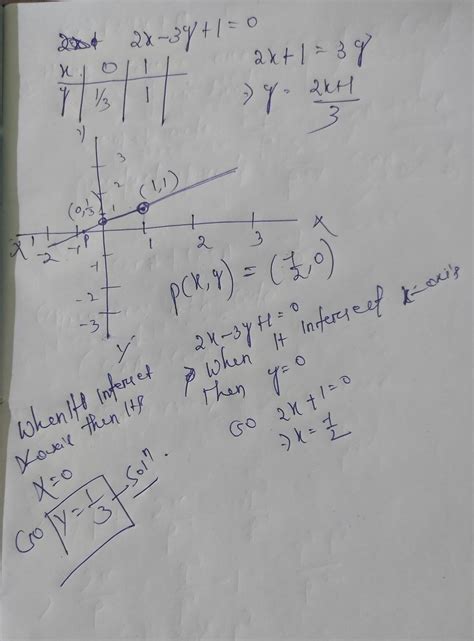 2x-3y+1=0
x 0 1
y 1/3 1
2x+1 = 3y
⇒ y = 2x+1/3
y
3
2
(1,1)
(0,1/3
1
X' -2 -1 P 1 2 3 X
-1
-2
-3
y'
P(x,y) = (-1/2,0)
2x-3y+1=0
When It intersect x-axis
Then y=0
So 2x+1=0
⇒ x = -1/2
When It intersect
Y axis then It's
X=0
So y = 1/3 Solⁿ.